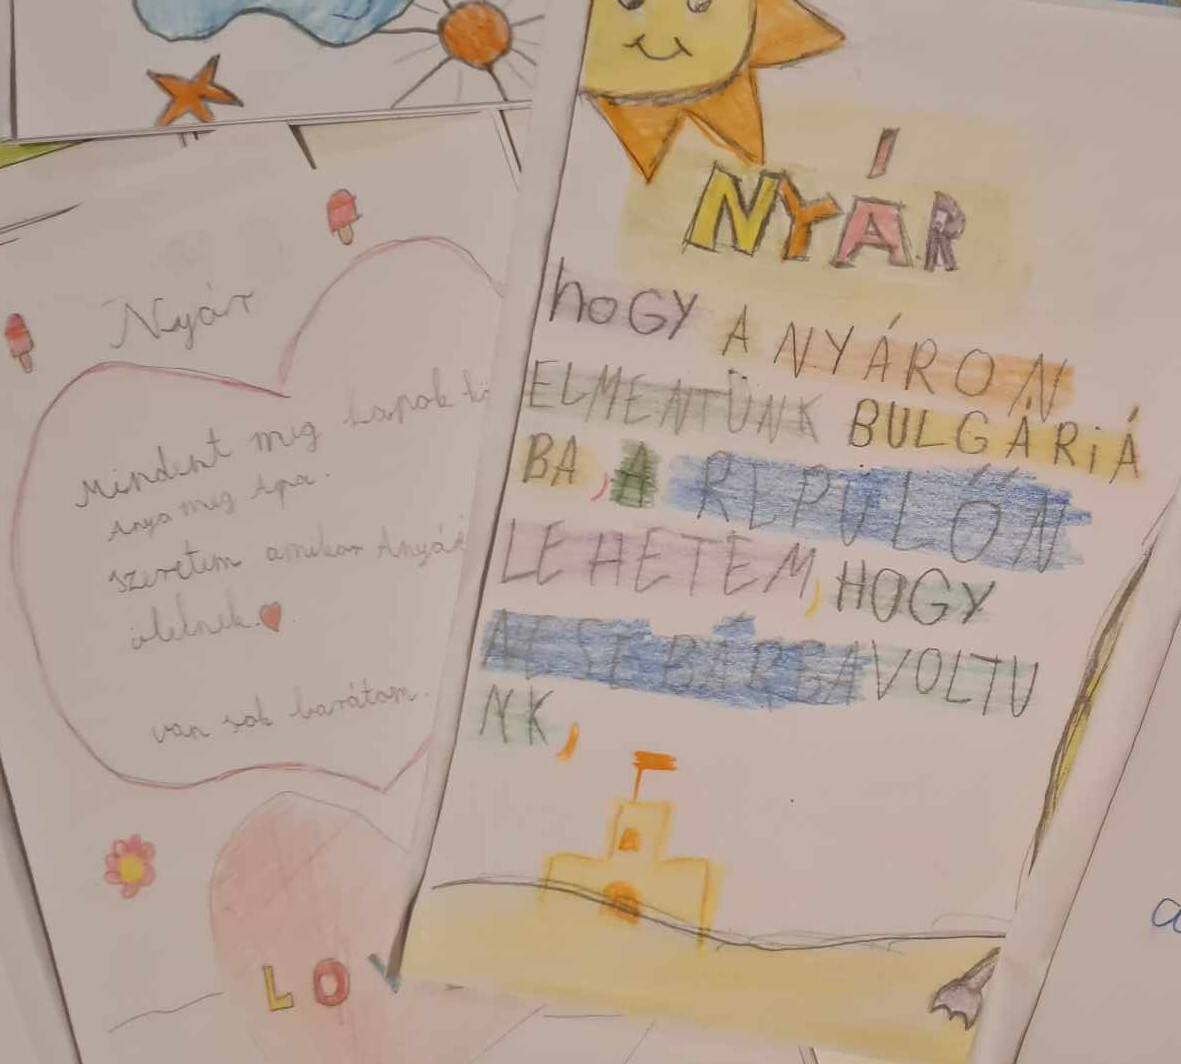 Nyár
Mindent meg kapok
Anya meg Apa.
szeretem amikor Anyáé
ölelnek.
van sok barátom.
LOV
NYÁR
hOGY A NYÁRON
ELMENTÜNK BULGÁRiÁ
BA, A REPÜLŐN
LEHETEM, HOGY
VOLTU
NK,